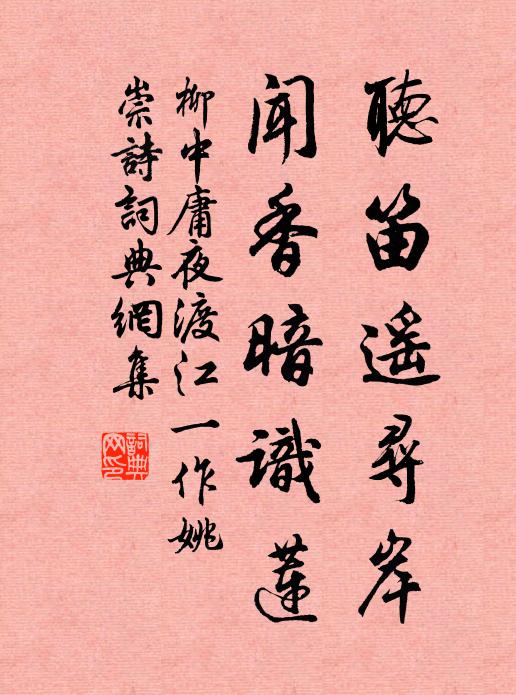 聽笛遥尋岸
聞香暗識蓮
柳中庸夜渡江一作姚
崇詩詞典網集
詞典网印